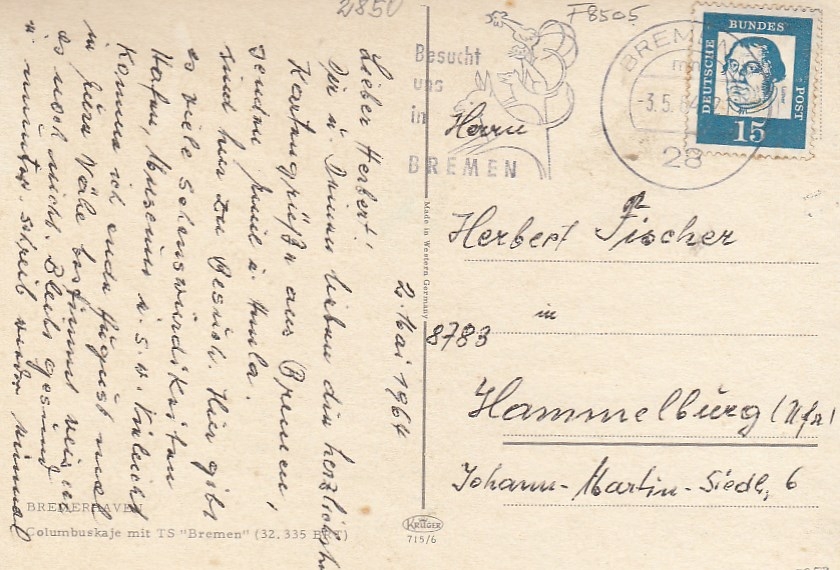 2850
F8505
Besucht
uns
in
BREMEN
BREMEN
-3.5.64
28
DEUTSCHE
BUNDES
POST
15
2. Mai 1964
Lieber Herbert!
Dir u. Deinen Lieben die herzlichsten
Kartengrüße aus Bremen,
senden
sind hier zu Besuch. Hier gibt
es viele Sehenswürdikeiten
Hafen, Museum u.s.w. Vieleicht
komme ich ende August mal
in eure Nähe bestimmt weis ich
es noch nicht. Bleib gesund
u. munter. schreib wieder einmal
Herrn
Herbert Fischer
in
8783
Hammelburg (Ufr)
Johann-Martin-Siedl, 6
BREMERHAVEN
Columbuskaje mit TS "Bremen" (32.335 BRT)
Made in Western Germany
KRÜGER
715/6